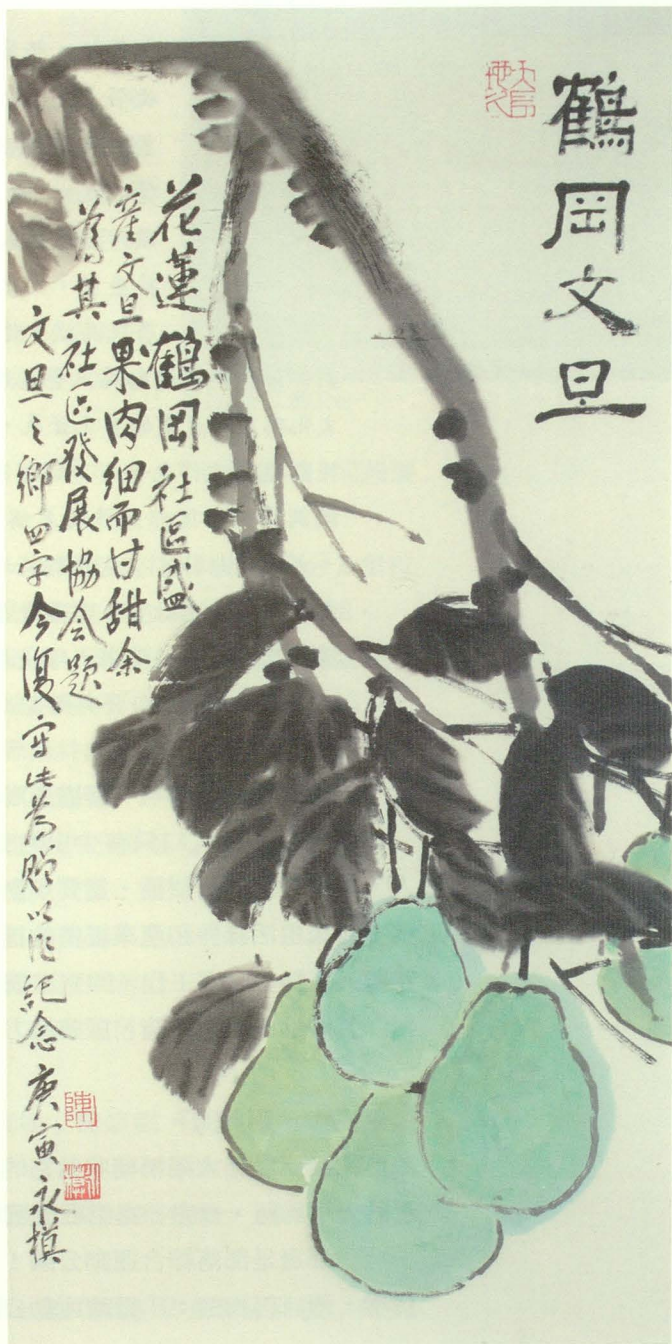 鶴岡文旦
花蓮鶴岡社區盛
產文旦果肉細而甘甜余
為其社區發展協会題
文旦之鄉四字今復寫此為贈以作紀念庚寅永模
陳